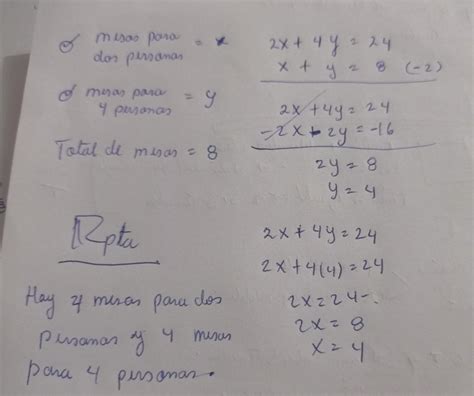 mesas para
dos personas = x
mesas para
4 personas = y
Total de mesas = 8
2x + 4y = 24
x + y = 8 (-2)
2x + 4y = 24
-2x - 2y = -16
2y = 8
y = 4
Rpta
Hay 4 mesas para dos
personas y 4 mesas
para 4 personas.
2x + 4y = 24
2x + 4(4) = 24
2x = 24 -
2x = 8
x = 4